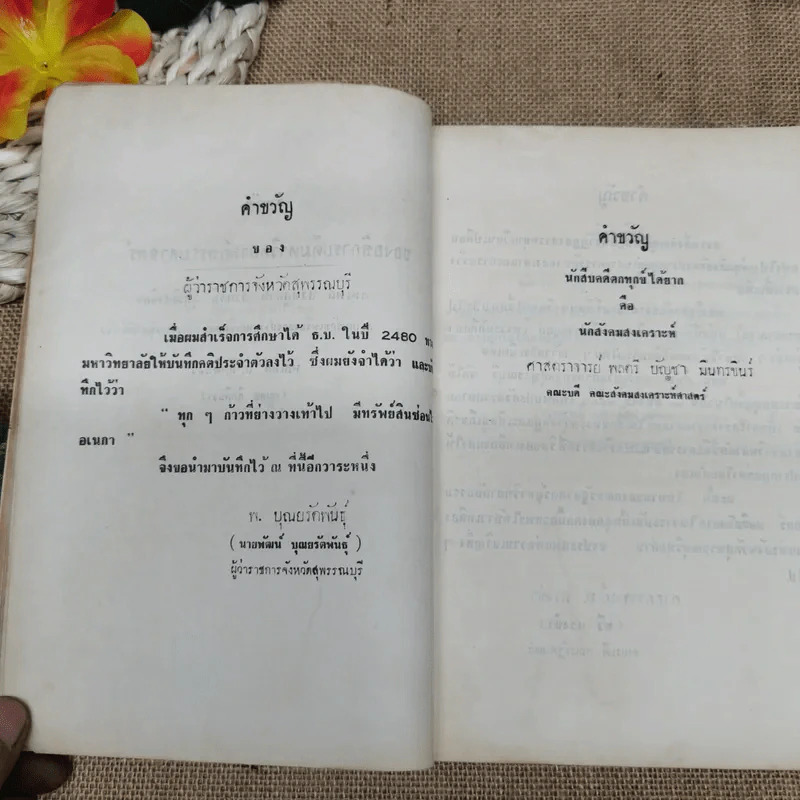 คำขวัญ
ของ
ผู้ว่าราชการจังหวัดสุพรรณบุรี
เมื่อผมสำเร็จการศึกษาได้ ธ.บ. ในปี 2480 ทาง
มหาวิทยาลัยให้บันทึกคติประจำตัวลงไว้ ซึ่งผมยังจำได้ว่า
ทึกไว้ว่า
" ทุก ๆ ก้าวที่ย่างวางเท้าไป มีทรัพย์สินซ่อน
อเนกา "
จึงขอนำมาบันทึกไว้ ณ ที่นี้อีกวาระหนึ่ง
พ. บุณยรัตพันธุ์
( นายพัฒน์ บุณยรัตพันธุ์ )
ผู้ว่าราชการจังหวัดสุพรรณบุรี
คำขวัญ
นักสืบคดีตกทุกข์ได้ยาก
คือ
นักสังคมสงเคราะห์
ศาสตราจารย์ พลตรี บัญชา มินทรขินร์
คณะบดี คณะสังคมสงเคราะห์ศาสตร์